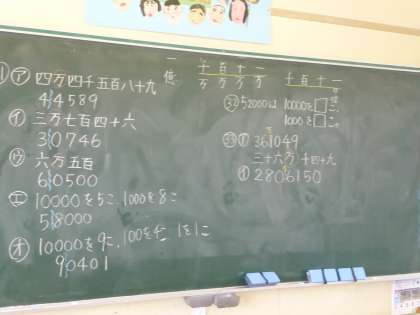 ① ㋐ 四万四千五百八十九
44589
㋑ 三万七百四十六
30746
㋒ 六万五百
60500
㋓ 10000を5こ、1000を8こ
58000
㋔ 10000を9こ、100を4こ、1を1こ
90401
一億 千万 百万 十万 一万 千百十一
㉜ 52000は 10000を□こ
1000を□こ
㉝ ㋐ 361049
三十六万 十四十九
㋑ 2806150